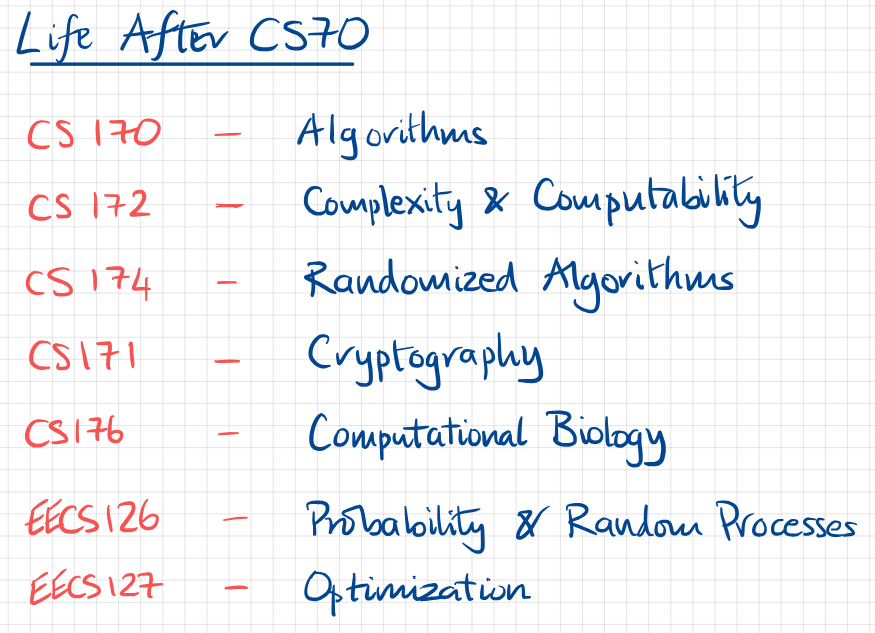 Life After CS70
CS 170 – Algorithms
CS 172 – Complexity & Computability
CS 174 – Randomized Algorithms
CS171 – Cryptography
CS176 – Computational Biology
EECS126 – Probability & Random Processes
EECS127 – Optimization